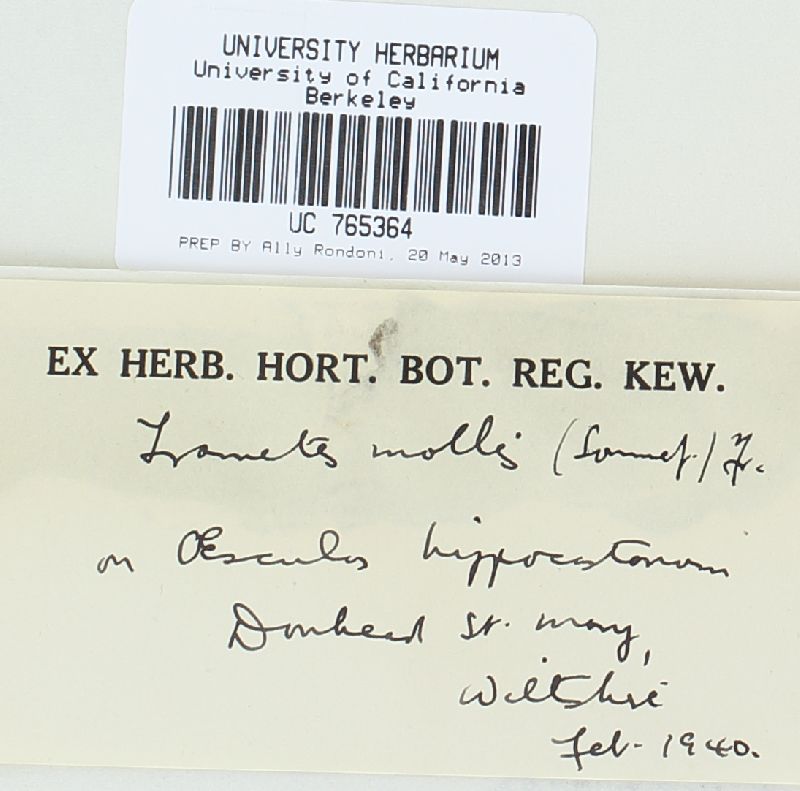 UNIVERSITY HERBARIUM
University of California
Berkeley
UC 765364
PREP BY Ally Rondoni, 20 May 2013
EX HERB. HORT. BOT. REG. KEW.
Trametes mollis (Sommf.) Fr.
on Aesculus hippocastanum
Donhead St. Mary,
Wiltshire
Feb. 1940.